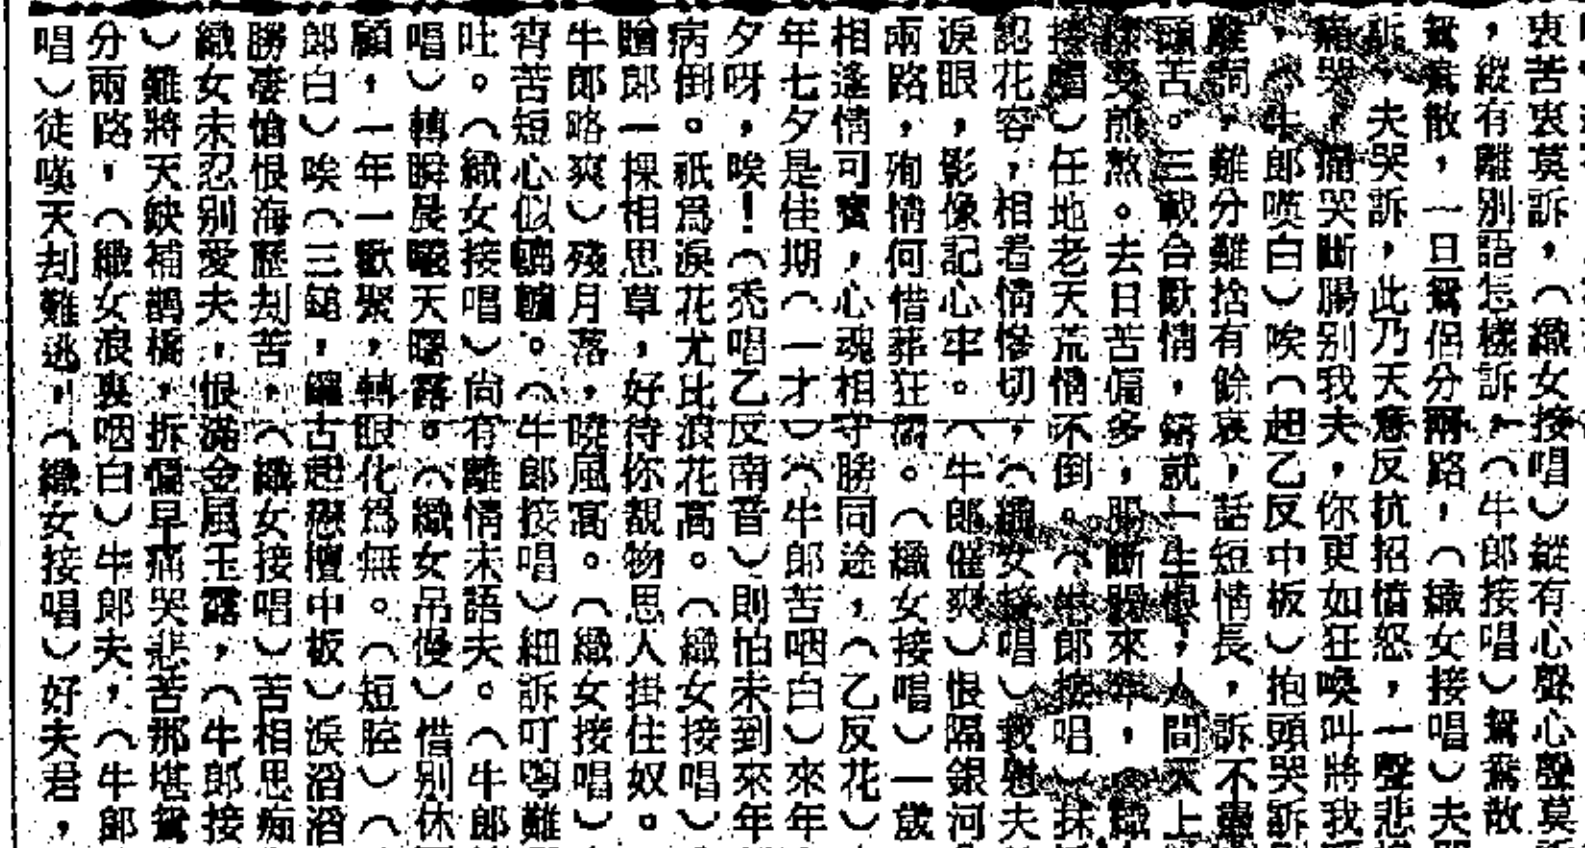 衷苦衷莫訴，（織女接唱）縱有心聲心聲莫
，縱有離別語怎樣訴，（牛郎接唱）鴛鴦散
鴛鴦散，一旦鴛侶分兩路，（織女接唱）夫
訴，夫哭訴，此乃天意反抗招憤怒，一聲悲
痛哭，痛哭斷腸别我夫，你更如狂喚叫將我
，（牛郎嘆白）唉（起乙反中板）抱頭哭訴
離詞，難分難捨有餘哀，話短情長，訴不盡
頭苦。三載合歡情，鑄就一生恨，人間天上
煎熬。去日苦偏多，腸斷腸來年，
接唱）任地老天荒情不倒。（牛郎接唱）抹
認花容，相看情慘切，（織女接唱）我慰夫
淚眼，影像記心牢。（牛郎催爽）恨隔銀河
兩路，殉情何惜葬狂濤。（織女接唱）一歲
相逢情可寶，心魂相守勝同途，（乙反花）
年七夕是佳期（一才）（牛郎苦咽白）來年
夕呀，唉！（禿唱乙反南音）則怕未到來年
病倒。祇爲淚花尤比浪花高。（織女接唱）
贈郎一棵相思草，好待你覩物思人掛住奴。
牛郎略爽）殘月落，曉風高。（織女接唱）
宵苦短心似轆轤。（牛郎接唱）細訴叮嚀難
吐。（織女接唱）尚有離情未語夫。（牛郎
唱）轉瞬晨曦天曙露。（織女吊慢）惜别休
顧，一年一歡聚，轉眼化爲無。（短腔）（
郎白）唉（三鎚，鑼古起戀檀中板）淚滔滔
勝凄愴恨海歷刦苦，（織女接唱）苦相思痴
織女未忍别愛夫，恨滿金風玉露，（牛郎接
）難將天缺補鵲橋，拆偏早痛哭悲苦那堪鴛
分兩路，（織女浪裏咽白）牛郎夫，（牛郎
唱）徒嘆天刦難逃，（織女接唱）好夫君，